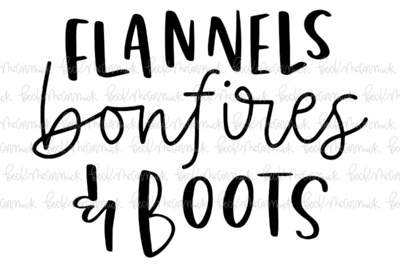 FLANNELS
bonfires
& BOOTS